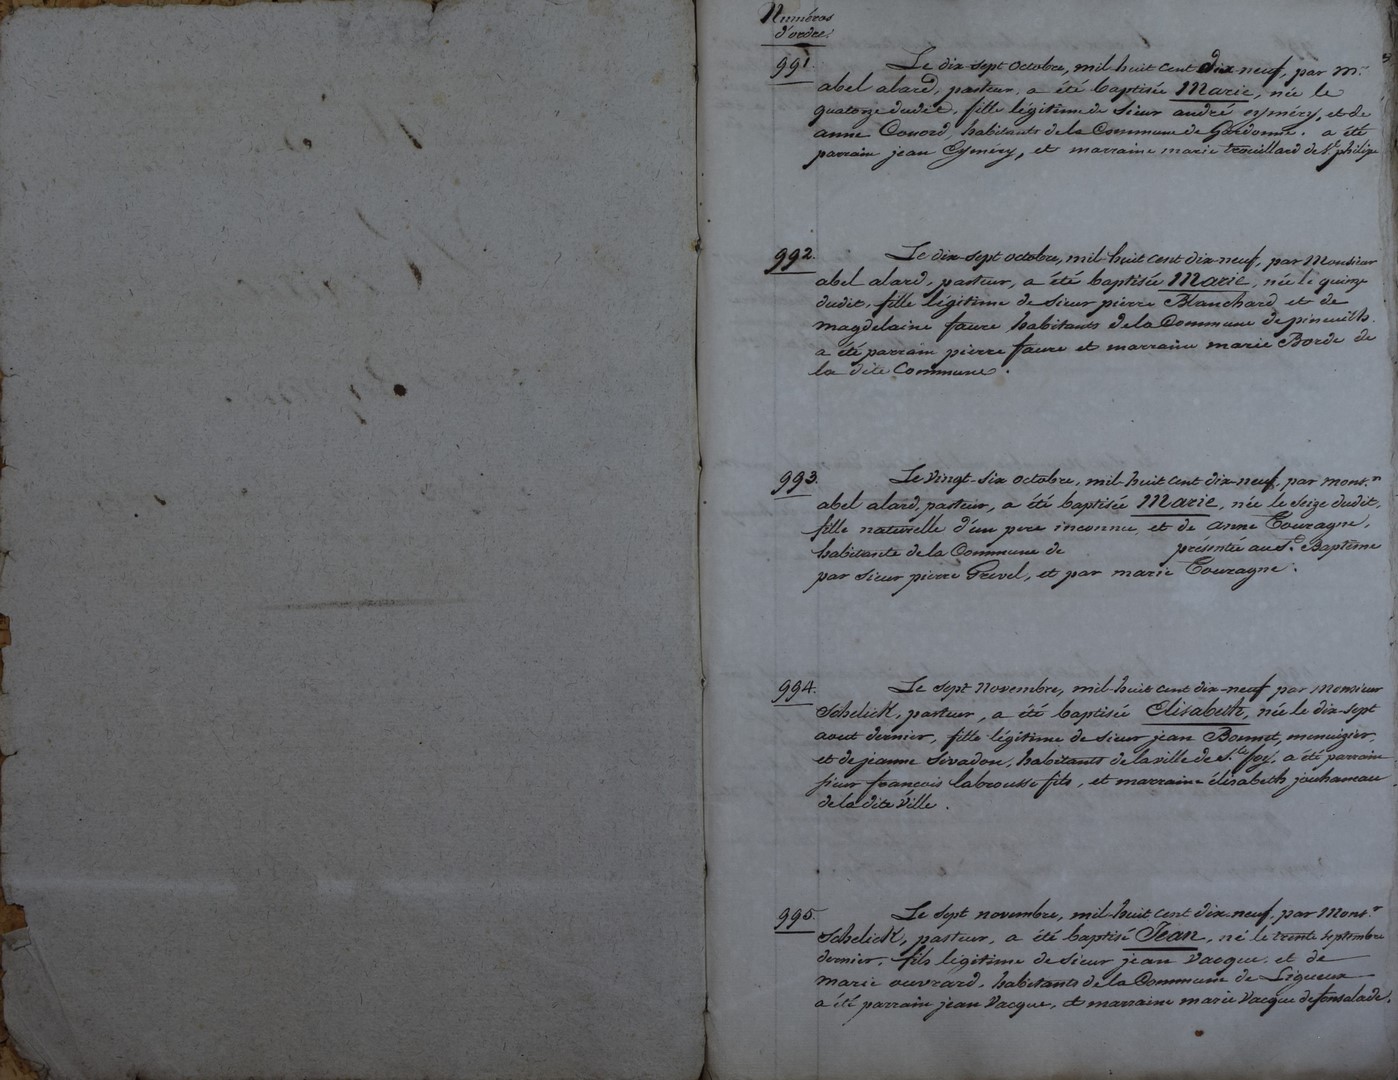 Numéros
d'ordre.
991. Le dix-sept octobre, mil-huit cent dix-neuf, par Mr.
abel alard, pasteur, a été baptisée Marie, née le
quatorze dudit, fille légitime de Sieur andré eyméry, et de
anne Couord, habitants de la Commune de Gardonne. a été
parrain jean Eyméry, et marraine marie trouillard de St. philipe
992. Le dix-sept octobre, mil-huit cent dix-neuf, par Monsieur
abel alard, pasteur, a été baptisée Marie, née le quinze
dudit, fille légitime de Sieur pierre Blanchard et de
Magdelaine faure habitants de la Commune de pineuilh.
a été parrain pierre faure et marraine marie Borde de
la dite Commune.
993. Le vingt-six octobre, mil-huit cent dix-neuf, par Mons.r
abel alard, pasteur, a été baptisée Marie, née le seize dudit,
fille naturelle d'un pere inconnu, et de anne Touragne,
habitante de la Commune de présentée au St. Baptême
par Sieur pierre Grevel, et par marie Touragne.
994. Le sept Novembre, mil-huit cent dix-neuf par Monsieur
Schelick, pasteur, a été baptisée Elisabeth, née le dix-sept
aout dernier, fille légitime de Sieur jean Bonnet, menuizier,
et de jeanne Sivadon, habitants de la ville de Ste. foy. a été parrain
sieur françois labrousse fils, et marraine élisabeth jouhaneau
de la dite Ville.
995. Le sept novembre, mil-huit cent dix-neuf, par Mons.r
Schelick, pasteur, a été baptisé Jean, né le trente septembre
dernier, fils légitime de Sieur jean Vacque, et de
marie ouvrard, habitants de la Commune de Ligueux
a été parrain jean Vacque, et marraine marie Vacque de fonsalade.